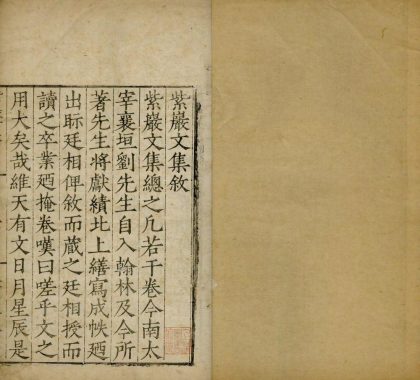 紫巖文集敘
紫巖文集總之凡若干卷今南太
宰襄垣劉先生自入翰林及今所
著先生將獻績北上繕寫成帙廼
出眎廷相俾敘而藏之廷相授而
讀之卒業廼掩卷嘆曰嗟乎文之
用大矣哉維天有文日月星辰是